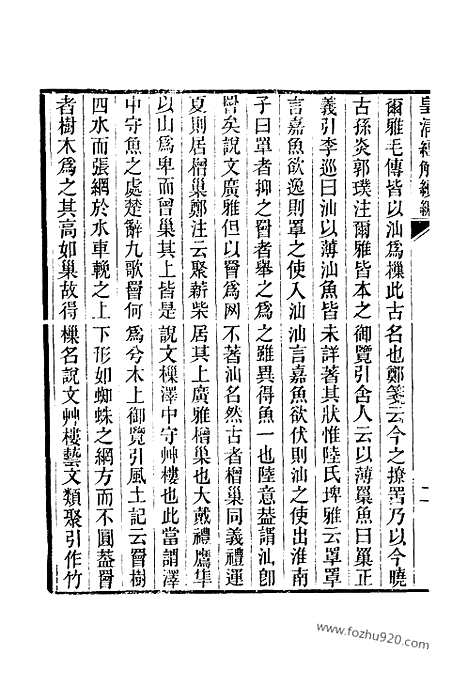 皇清經解續編
二
爾雅毛傳皆以汕爲樔此古名也鄭箋云今之撩罟乃以今曉
古孫炎郭璞注爾雅皆本之御覽引舍人云以薄䍜魚曰巢正
義引李巡曰汕以薄汕魚皆未詳著其狀惟陸氏埤雅云罩罩
言嘉魚欲逸則罩之使入汕汕言嘉魚欲伏則汕之使出淮南
子曰罩者抑之罾者舉之爲之雖異得魚一也陸意葢謂汕卽
罾矣說文廣雅但以罾爲网不著汕名然古者橧巢同義禮運
夏則居橧巢鄭注云聚薪柴居其上廣雅橧巢也大戴禮鷹隼
以山爲卑而曾巢其上皆是說文樔澤中守艸樓也此當謂澤
中守魚之處楚辭九歌罾何爲兮木上御覽引風土記云罾樹
四水而張網於水車輓之上下形如蜘蛛之網方而不圓葢罾
者樹木爲之其高如巢故得樔名說文艸樓藝文類聚引作竹
www.fozhu920.com